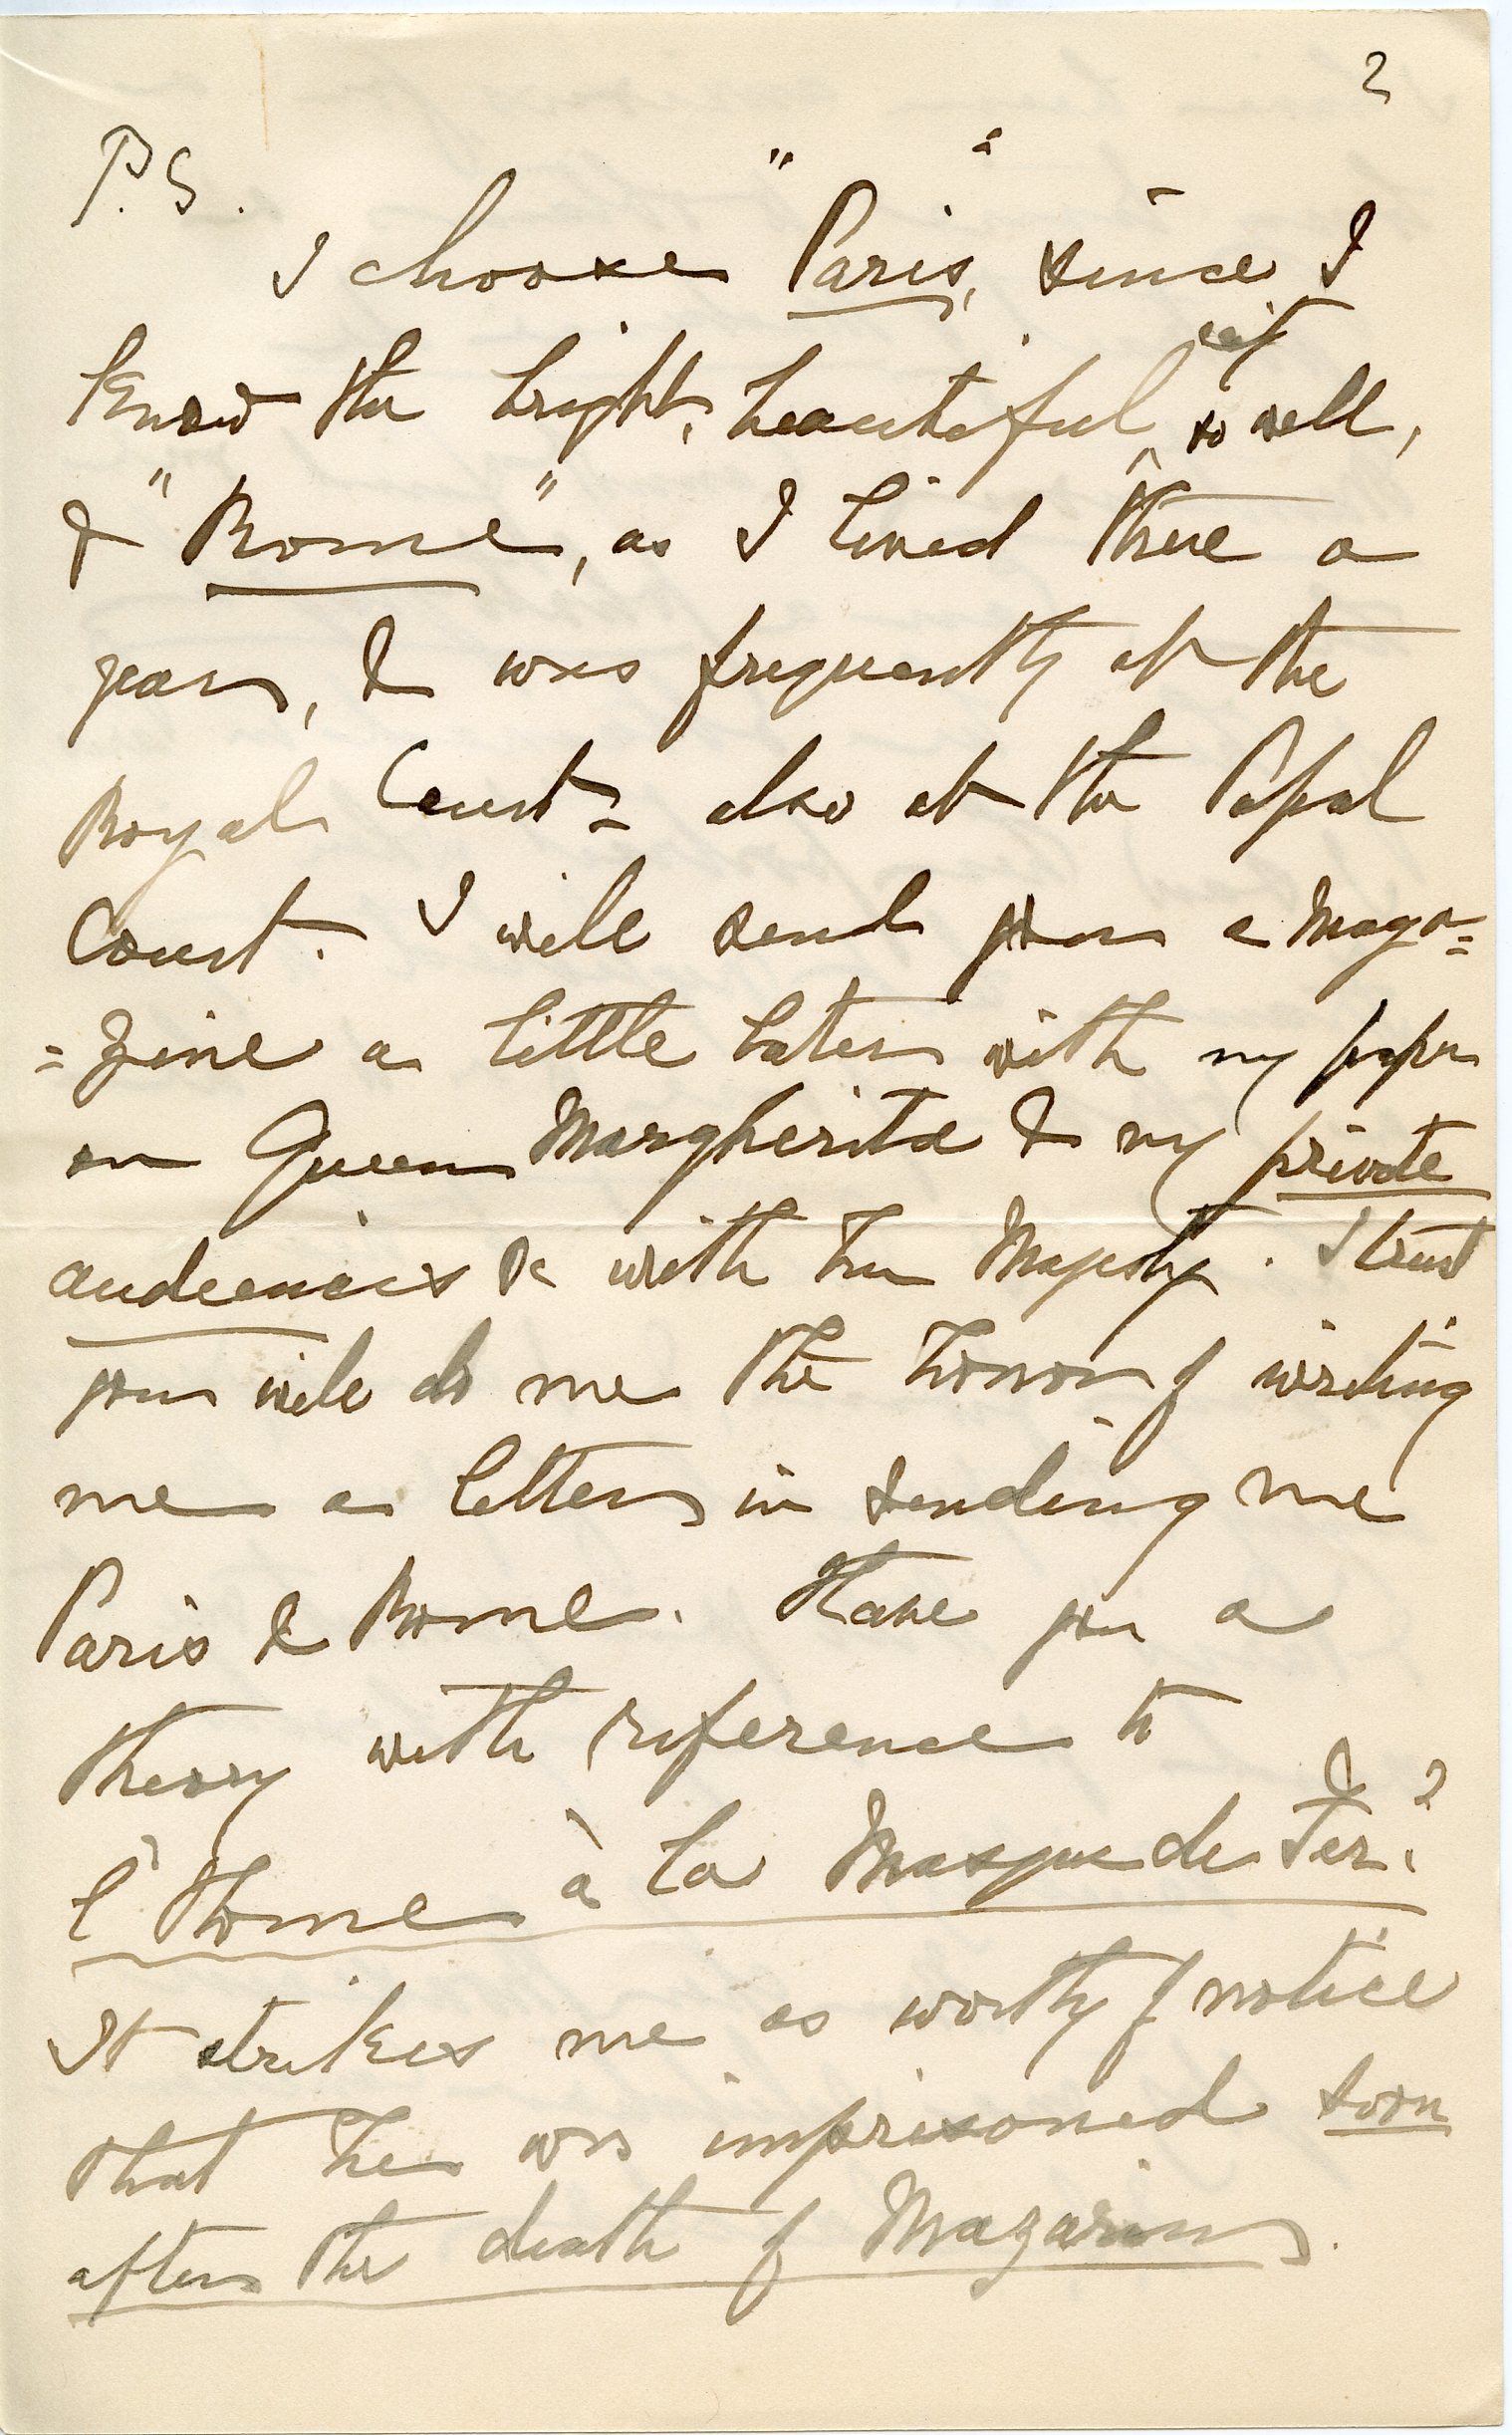 2
P.S.
I choose "Paris," since I
know the bright, beautiful city so well,
& "Rome", as I lived there a
year, & was frequently at the
Royal Court - also at the Papal
Court. I will send you a Maga=
=zine a little later with my paper
on Queen Margherita & my private
audiences &c with Her Majesty. I trust
you will do me the honor of writing
me a letter in sending me
Paris & Rome. Have you a
theory with reference to
l'Home à la Masque de Fer?
It strikes me as worthy of notice
that he was imprisoned soon
after the death of Mazarin.